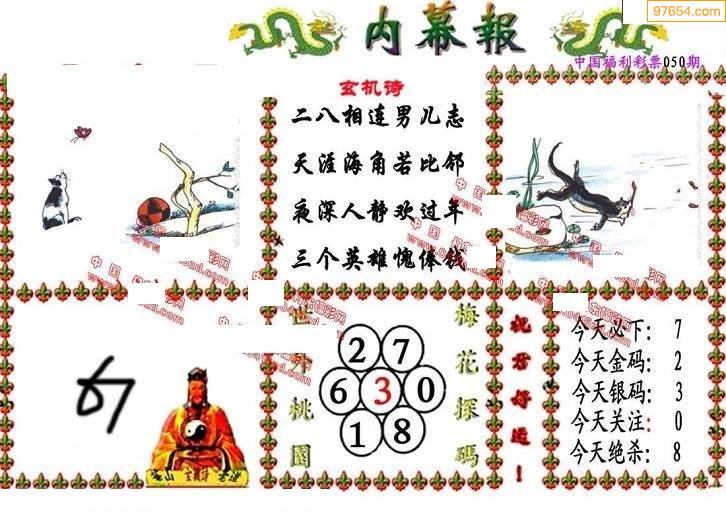 97654.com
内幕報
中国福利彩票050期
玄机诗
二八相连男儿志
天涯海角若比邻
夜深人静欢过年
三个英雄愧俸钱
世外桃園
梅花探碼
2 7
6 3 0
1 8
祝君好运！
今天必下: 7
今天金码: 2
今天银码: 3
今天关注: 0
今天绝杀: 8